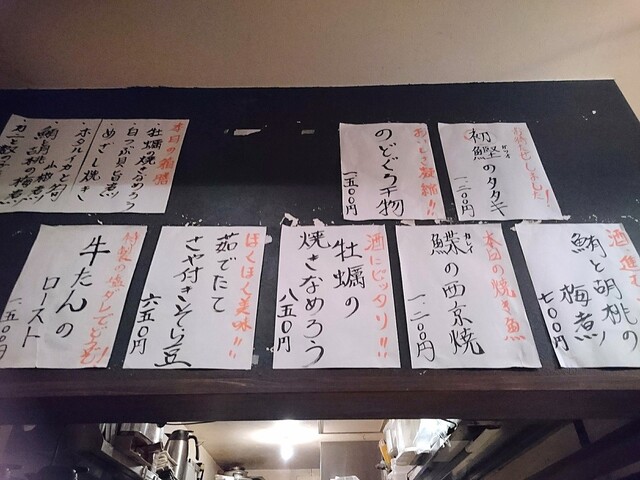 お待たせしました!
初鰹のタタキ
ガツオ
一、二〇〇円
おいしさ凝縮!!
のどぐろ干物
一五〇〇円
本日の箱膳
・牡蠣の焼きなめろう
・白つぶ貝旨煮
・めざし焼き
・ホタルイカと分葱
酒進む
鮪と胡桃の
梅煮
七〇〇円
本日の焼き魚
鰈の西京焼
カレイ
一、二〇〇円
酒にピッタリ!!
牡蠣の
焼きなめろう
八五〇円
ほくほく美味!!
茹でたて
さや付きそら豆
六五〇円
特製の塩ダレでどうぞ!
牛たんの
ロースト
一、五〇〇円